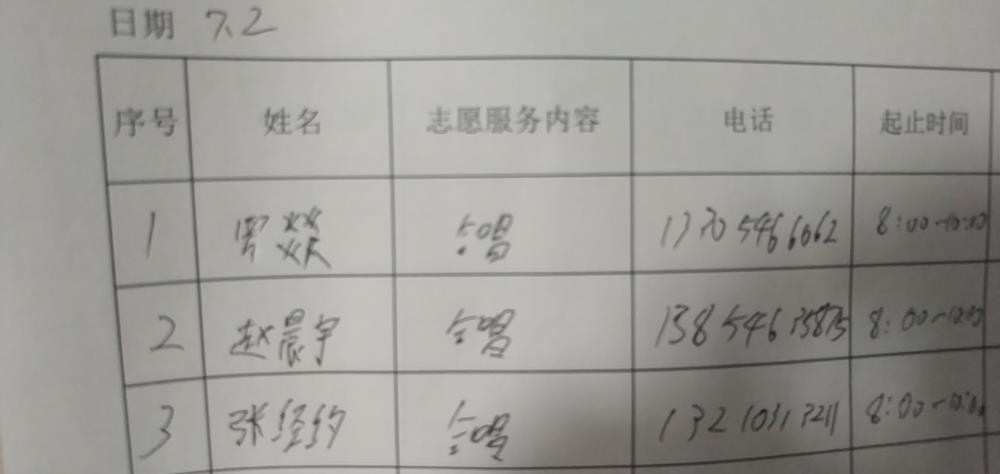 日期 7.2
序号 姓名 志愿服务内容 电话 起止时间
1 合唱 8:00-10:00
2 赵晨宇 合唱 8:00-10:00
3 张经纬 合唱 13210313211 8:00-10:00